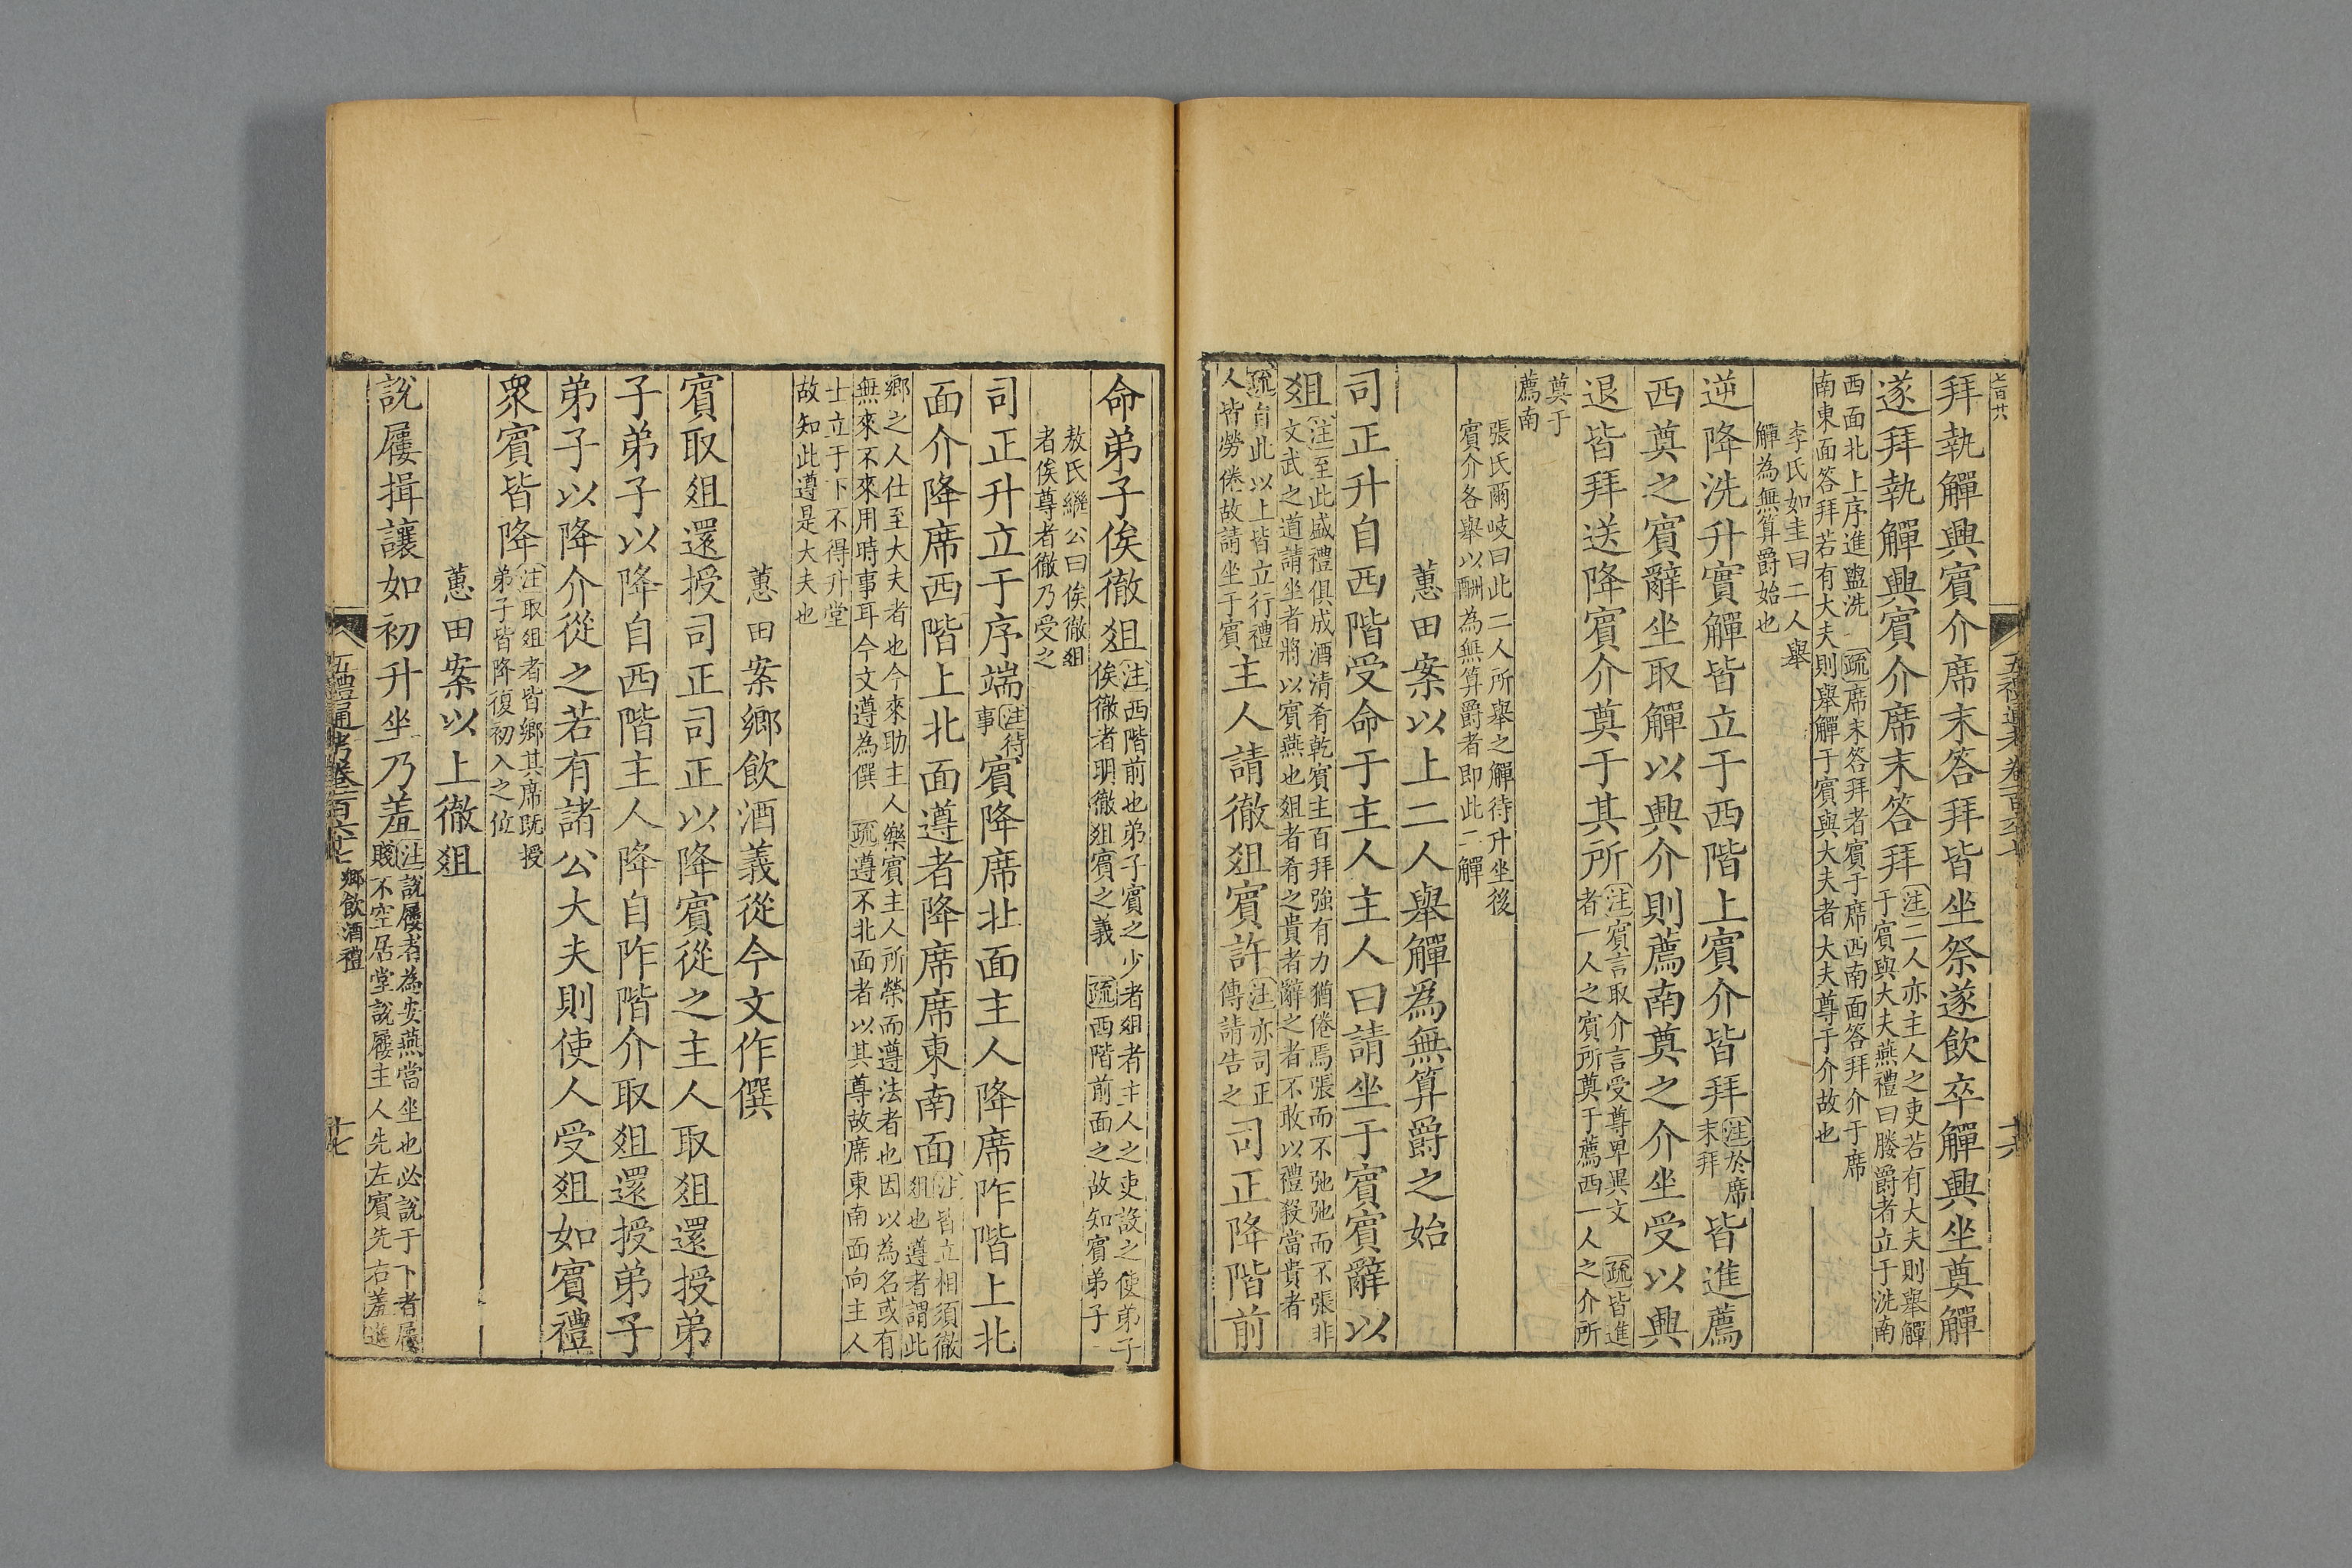 拜執觶興賓介席末答拜皆坐祭遂飲卒觶興坐奠觶
遂拜執觶興賓介席末答拜注二人亦主人之吏若有大夫則舉觶
于賓與大夫燕禮曰媵爵者立于洗南
西面北上序進盥洗疏席末答拜者賓于席西南面答拜介于席
南東面答拜若有大夫則舉觶于賓與大夫者大夫尊于介故也
李氏如圭曰二人舉
觶為無算爵始也
逆降洗升實觶皆立于西階上賓介皆拜注於席
末拜皆進薦
西奠之賓辭坐取觶以興介則薦南奠之介坐受以興
退皆拜送降賓介奠于其所注賓言取介言受尊卑異文疏皆進
者一人之賓所奠于薦西一人之介所
奠于
薦南
張氏爾岐曰此二人所舉之觶待升坐後
賓介各舉以酬為無算爵者即此二觶
蕙田案以上二人舉觶為無算爵之始
司正升自西階受命于主人主人曰請坐于賓賓辭以
俎注至此盛禮俱成酒清肴乾賓主百拜強有力猶倦焉張而不弛弛而不張非
文武之道請坐者將以賓燕也俎者肴之貴者辭之者不敢以禮殺當貴者
疏自此以上皆立行禮
人皆勞倦故請坐于賓主人請徹俎賓許注亦司正
傳請告之司正降階前
命弟子俟徹俎注西階前也弟子賓之少者俎者主人之吏設之使弟子
俟徹者明徹俎賓之義疏西階前面之故知賓弟子
敖氏繼公曰俟徹俎
者俟尊者徹乃受之
司正升立于序端注待
事賓降席北面主人降席阼階上北
面介降席西階上北面遵者降席席東南面注皆立相須徹
俎也遵者謂此
鄉之人仕至大夫者也今來助主人樂賓主人所榮而遵法者也因以為名或有
無來不來用時事耳今文遵為僎疏遵不北面者以其尊故席東南面向主人
士立于下不得升堂
故知此遵是大夫也
蕙田案鄉飲酒義從今文作僎
賓取俎還授司正司正以降賓從之主人取俎還授弟
子弟子以降自西階主人降自阼階介取俎還授弟子
弟子以降介從之若有諸公大夫則使人受俎如賓禮
眾賓皆降注取俎者皆鄉其席既授
弟子皆降復初入之位
蕙田案以上徹俎
說屨揖讓如初升坐乃羞注說屨者為安燕當坐也必說于下者屨
賤不空居堂說屨主人先左賓先右羞進
五禮通考卷一百六十七 鄉飲酒禮
十七